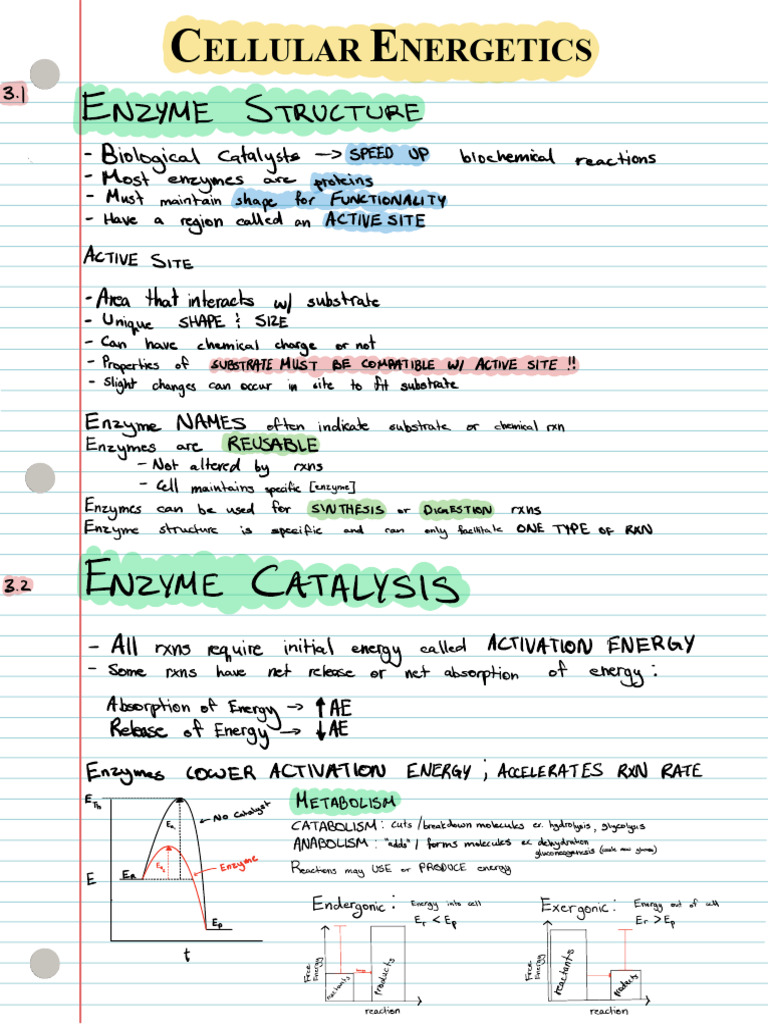 CELLULAR ENERGETICS
3.1
ENZYME STRUCTURE
- Biological Catalysts → SPEED UP biochemical reactions
- Most enzymes are proteins
- Must maintain shape for FUNCTIONALITY
- Have a region called an ACTIVE SITE
ACTIVE SITE
- Area that interacts w/ substrate
- Unique SHAPE & SIZE
- Can have chemical charge or not
- Properties of SUBSTRATE MUST BE COMPATIBLE W/ ACTIVE SITE !!
- Slight changes can occur in site to fit substrate
Enzyme NAMES often indicate substrate or chemical rxn
Enzymes are REUSABLE
- Not altered by rxns
- Cell maintains specific [enzyme]
Enzymes can be used for SYNTHESIS or DIGESTION rxns
Enzyme structure is specific and can only facilitate ONE TYPE OF RXN
3.2
ENZYME CATALYSIS
- All rxns require initial energy called ACTIVATION ENERGY
- Some rxns have net release or net absorption of energy:
Absorption of Energy → ↑ AE
Release of Energy → ↓ AE
Enzymes LOWER ACTIVATION ENERGY ; ACCELERATES RXN RATE
No Catalyst
Enzyme
E
E_R
E_P
t
METABOLISM
CATABOLISM: cuts/breakdown molecules ex. hydrolysis, glycolysis
ANABOLISM: "adds" / forms molecules ex. dehydration
gluconeogenesis
Reactions may USE or PRODUCE energy
Endergonic: Energy into cell
Er < Ep
Free Energy
reactants
products
reaction
Exergonic: Energy out of cell
Er > Ep
Free Energy
reactants
products
reaction